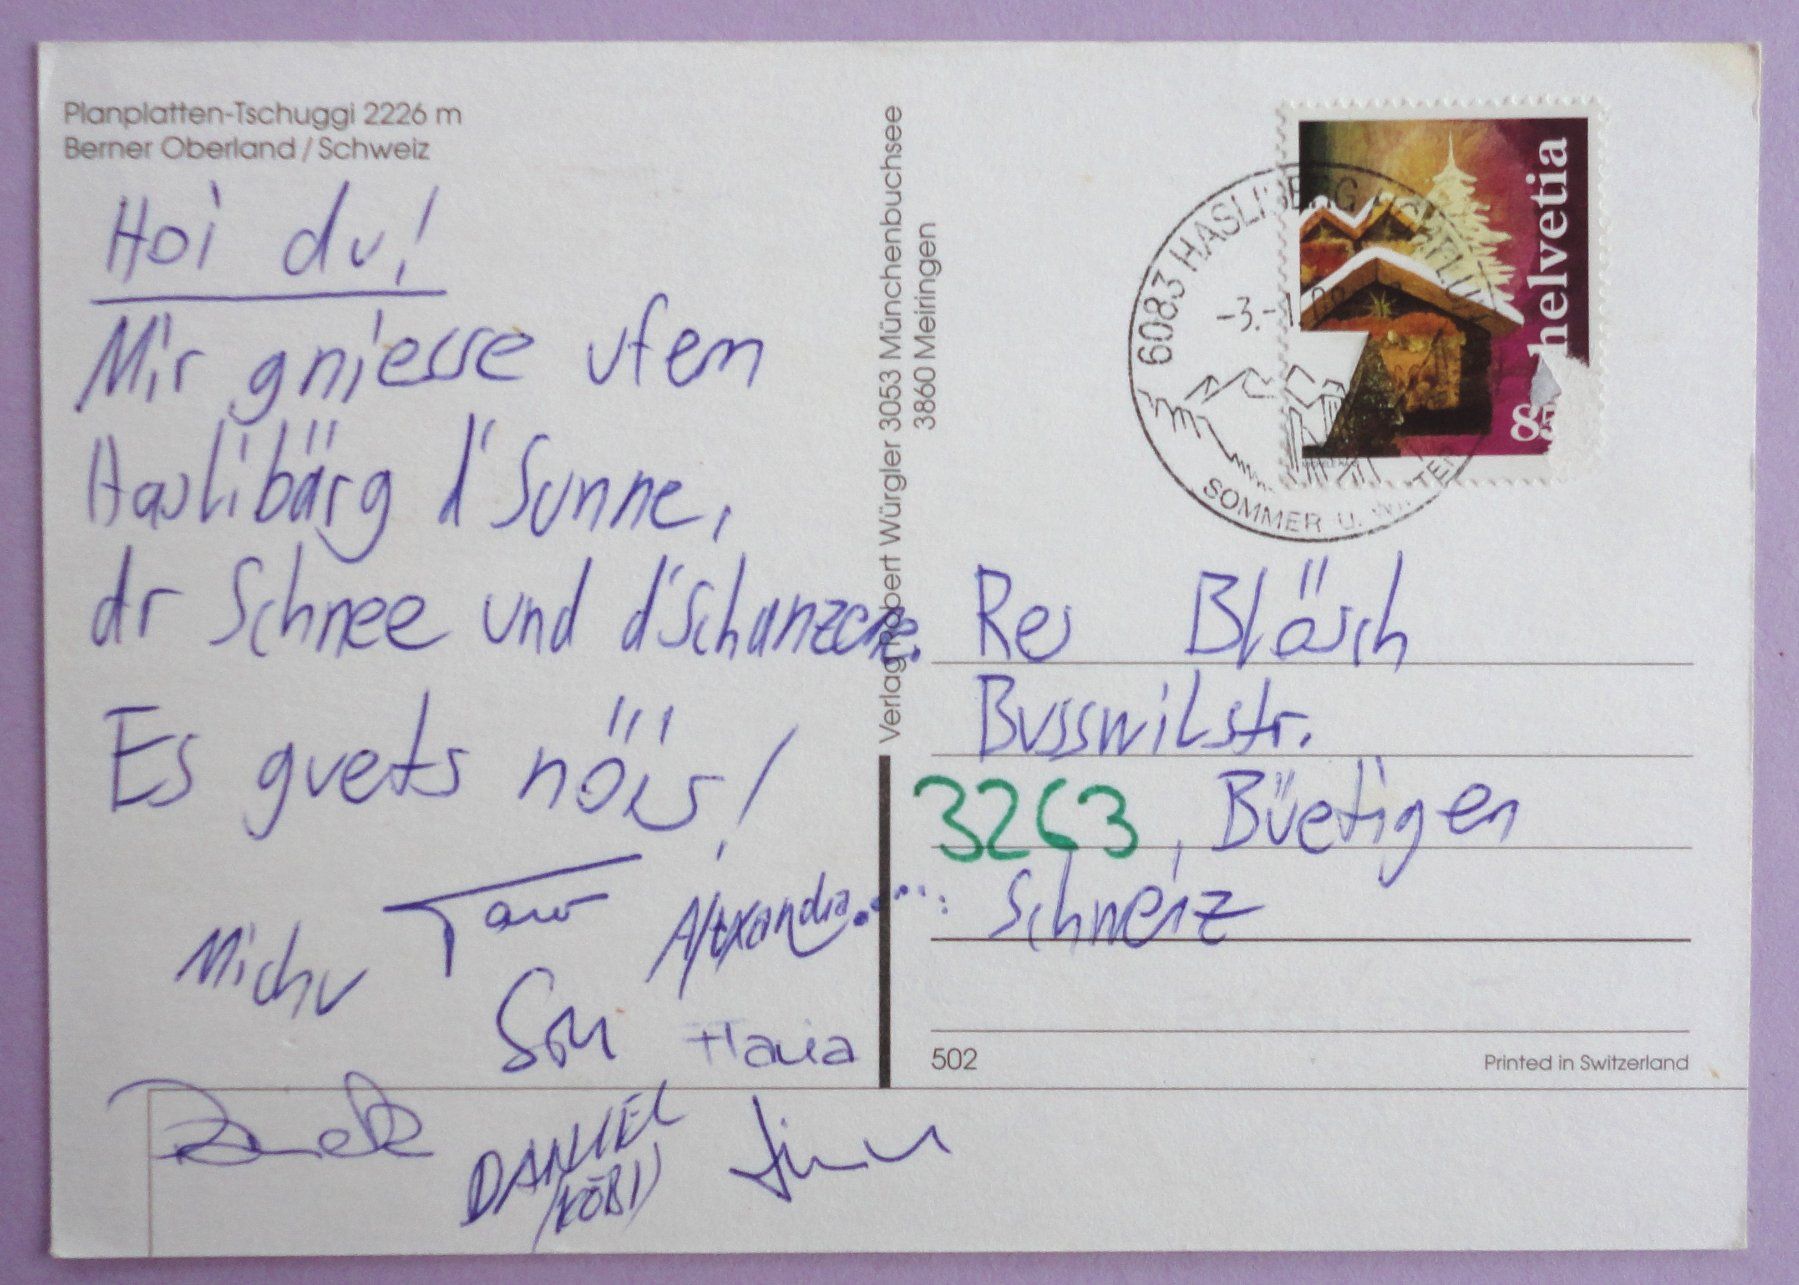 Planplatten-Tschuggi 2226 m
Berner Oberland / Schweiz
Hoi du!
Mir gniesse ufem
Haslibärg d'Sunne,
dr Schnee und d'Schanzene.
Es guets nöis!
Michu
Alexandra
Flavia
DANIEL
(KÖBI)
Verlag Robert Würgler 3053 Münchenbuchsee
3860 Meiringen
helvetia
85
6083 HASLIBERG HOHFLUH
-3.-1
SOMMER U. WINTER
Res Bläsch
Busswilstr.
3263, Büetigen
Schweiz
502
Printed in Switzerland